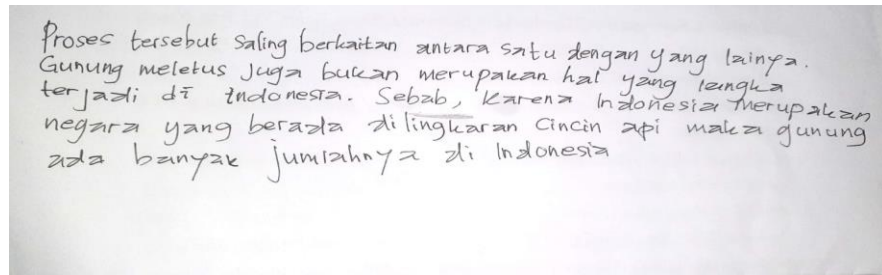 Proses tersebut saling berkaitan antara satu dengan yang lainya.
Gunung meletus juga bukan merupakan hal yang langka
terjadi di indonesia. Sebab, karena Indonesia merupakan
negara yang berada di lingkaran cincin api maka gunung
ada banyak jumlahnya di Indonesia